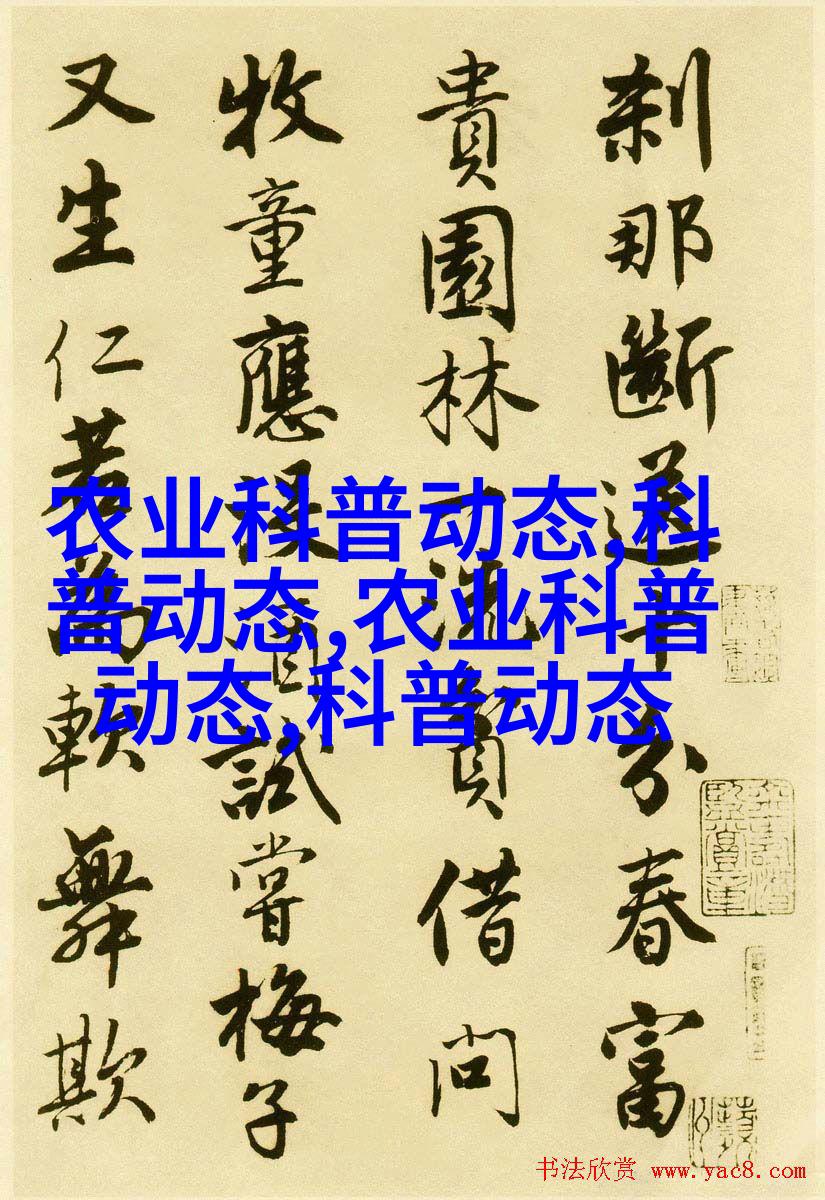 刹那斷送十分春富
貴園林一洗貧借問
牧童應没酒試嘗梅子
又生仁若為軟舞欺
农业科普动态,科
普动态,农业科普
动态,科普动态
书法欣赏 www.yac8.com